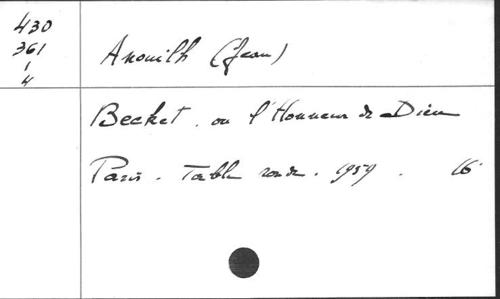 430
361
1
4
Anouilh (Jean)
Becket. ou l'Honneur de Dieu
Paris. Table ronde. 1959. 16